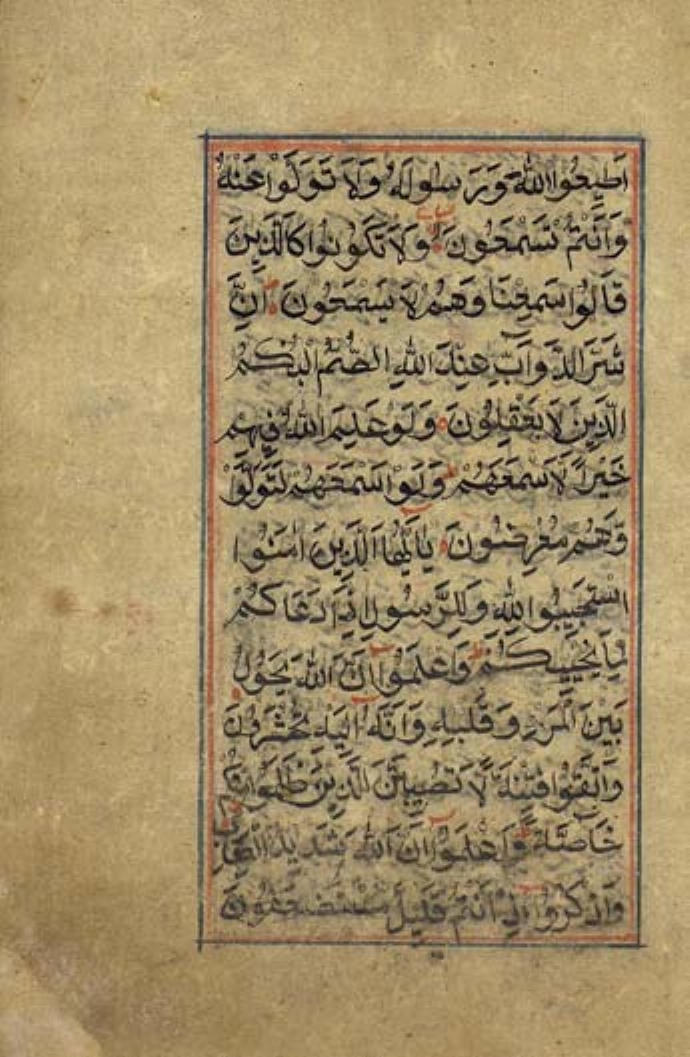 اَطِيعُوا اللّٰهَ وَرَسُولَهُ وَلَا تَوَلَّوْا عَنْهُ
وَاَنْتُمْ تَسْمَعُونَ وَلَا تَكُونُوا كَالَّذِينَ
قَالُوا سَمِعْنَا وَهُمْ لَا يَسْمَعُونَ اِنَّ
شَرَّ الدَّوَآبِّ عِنْدَ اللّٰهِ الصُّمُّ الْبُكْمُ
الَّذِينَ لَا يَعْقِلُونَ وَلَوْ عَلِمَ اللّٰهُ فِيهِمْ
خَيْرًا لَاَسْمَعَهُمْ وَلَوْ اَسْمَعَهُمْ لَتَوَلَّوْا
وَهُمْ مُعْرِضُونَ يَا اَيُّهَا الَّذِينَ اٰمَنُوا
اسْتَجِيبُوا لِلّٰهِ وَلِلرَّسُولِ اِذَا دَعَاكُمْ
لِمَا يُحْيِيكُمْ وَاعْلَمُوا اَنَّ اللّٰهَ يَحُولُ
بَيْنَ الْمَرْءِ وَقَلْبِهِ وَاَنَّهُ اِلَيْهِ تُحْشَرُونَ
وَاتَّقُوا فِتْنَةً لَا تُصِيبَنَّ الَّذِينَ ظَلَمُوا مِنْكُمْ
خَآصَّةً وَاعْلَمُوا اَنَّ اللّٰهَ شَدِيدُ الْعِقَابِ
وَاذْكُرُوا اِذْ اَنْتُمْ قَلِيلٌ مُسْتَضْعَفُونَ